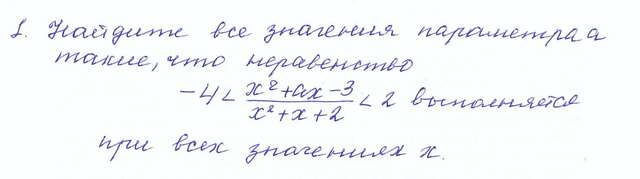 1. Найдите все значения параметра a
такие, что неравенство
-4 < \frac{x²+ax-3}{x²+x+2} < 2 выполняется
при всех значениях x.